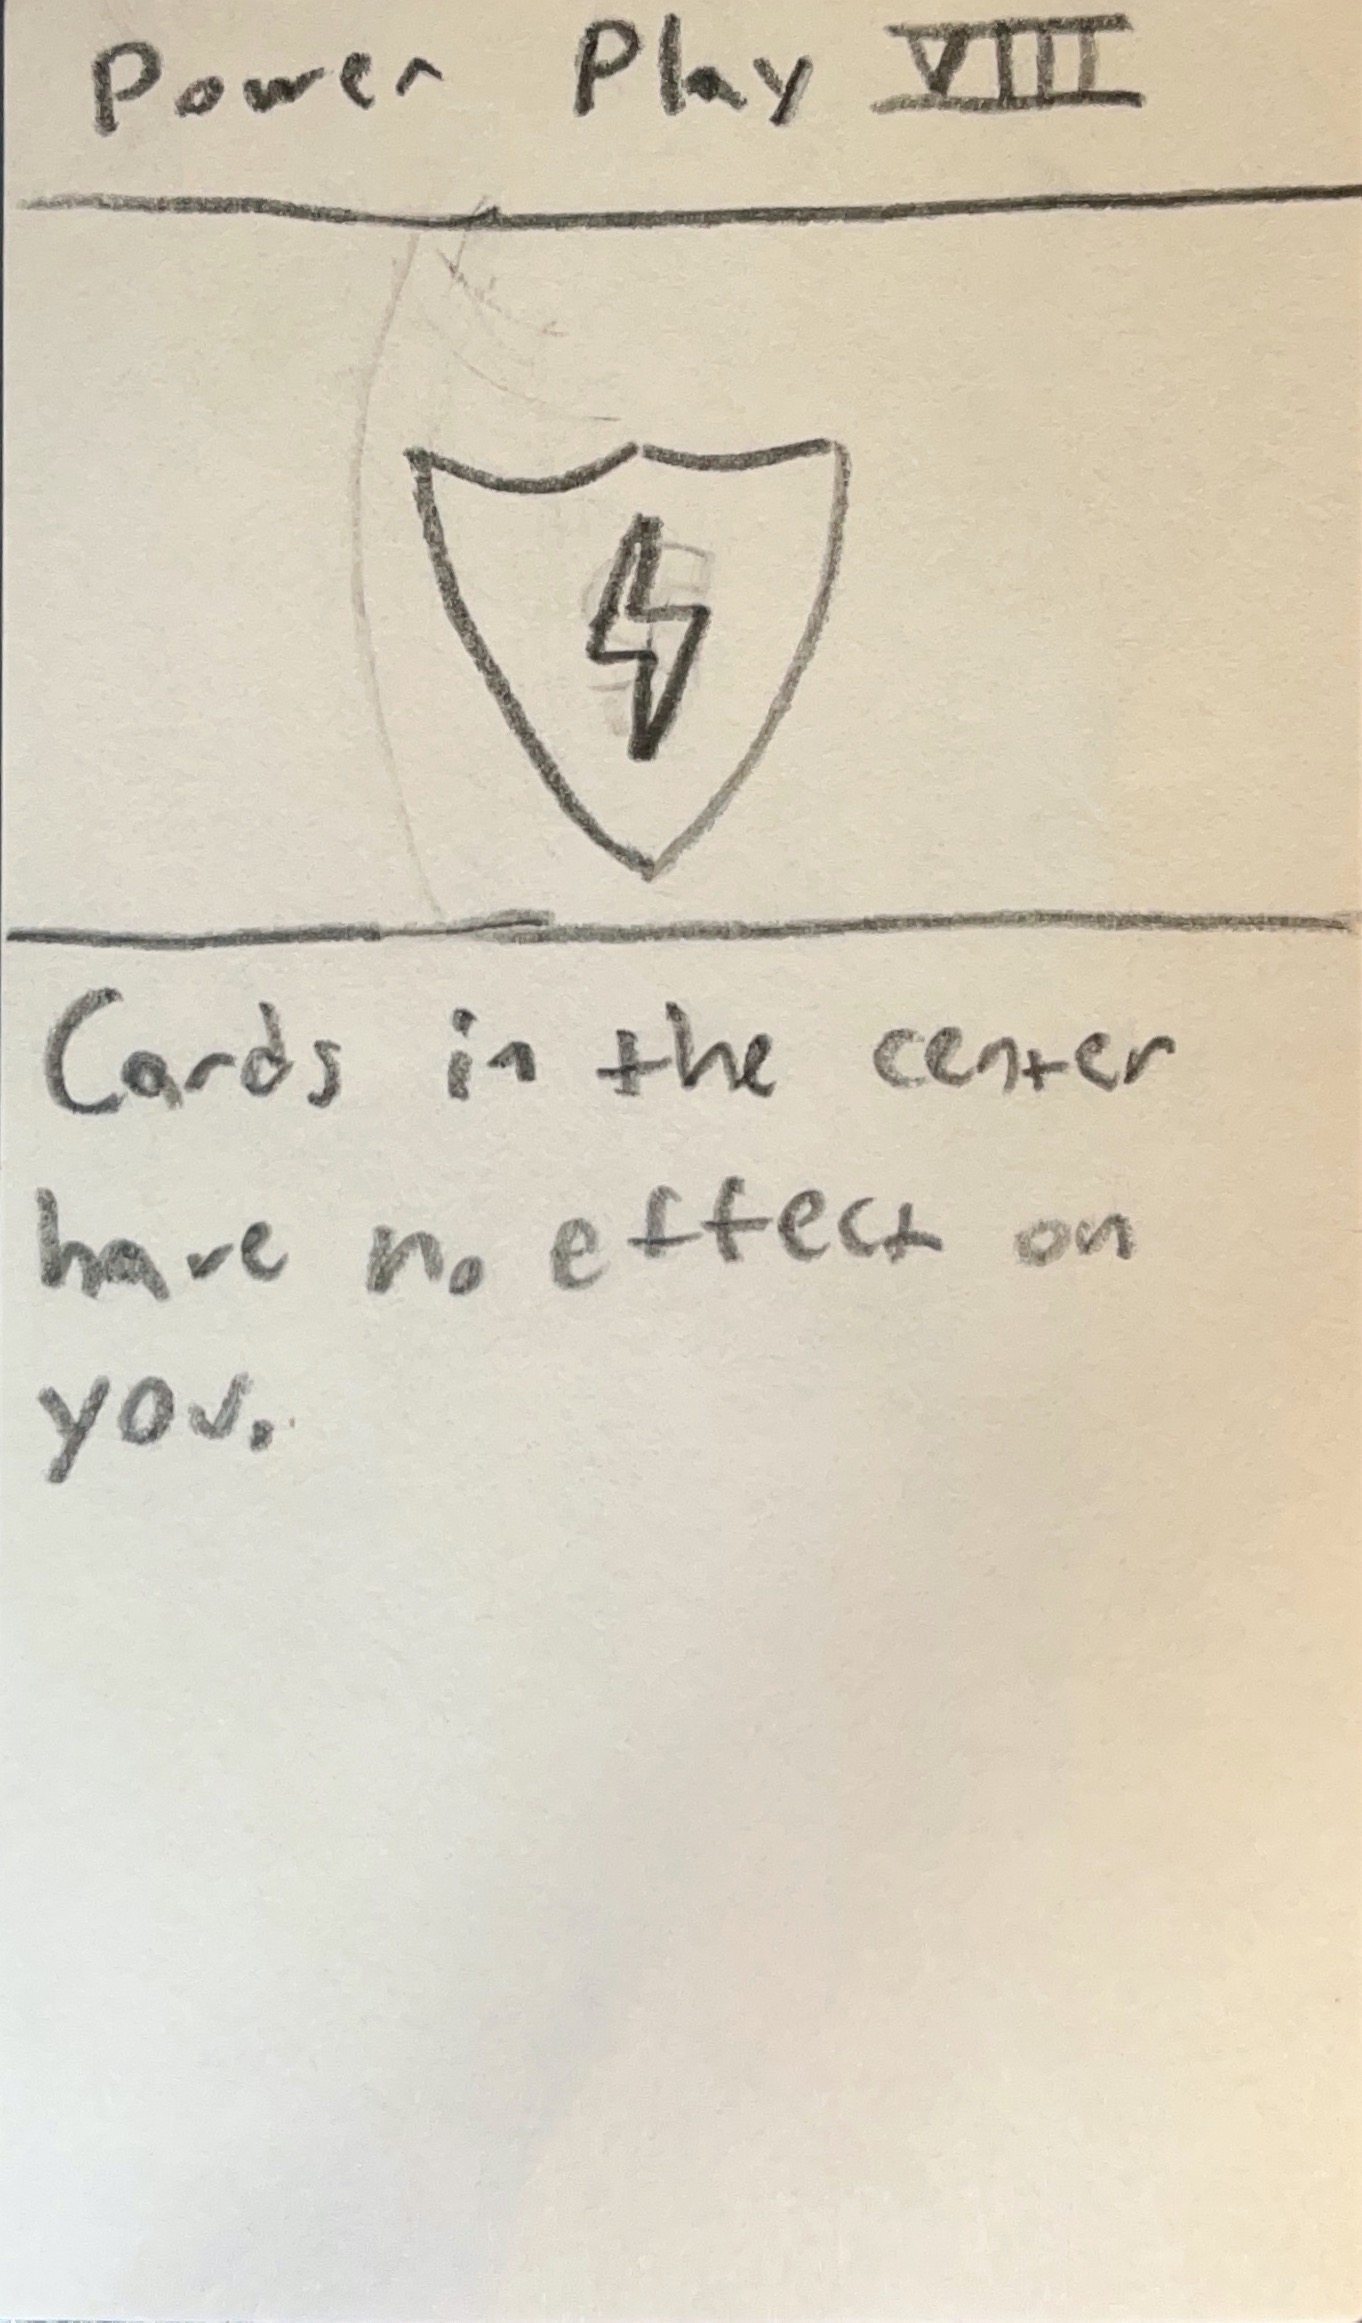 Power Play VIII
Cards in the center
have no effect on
you.